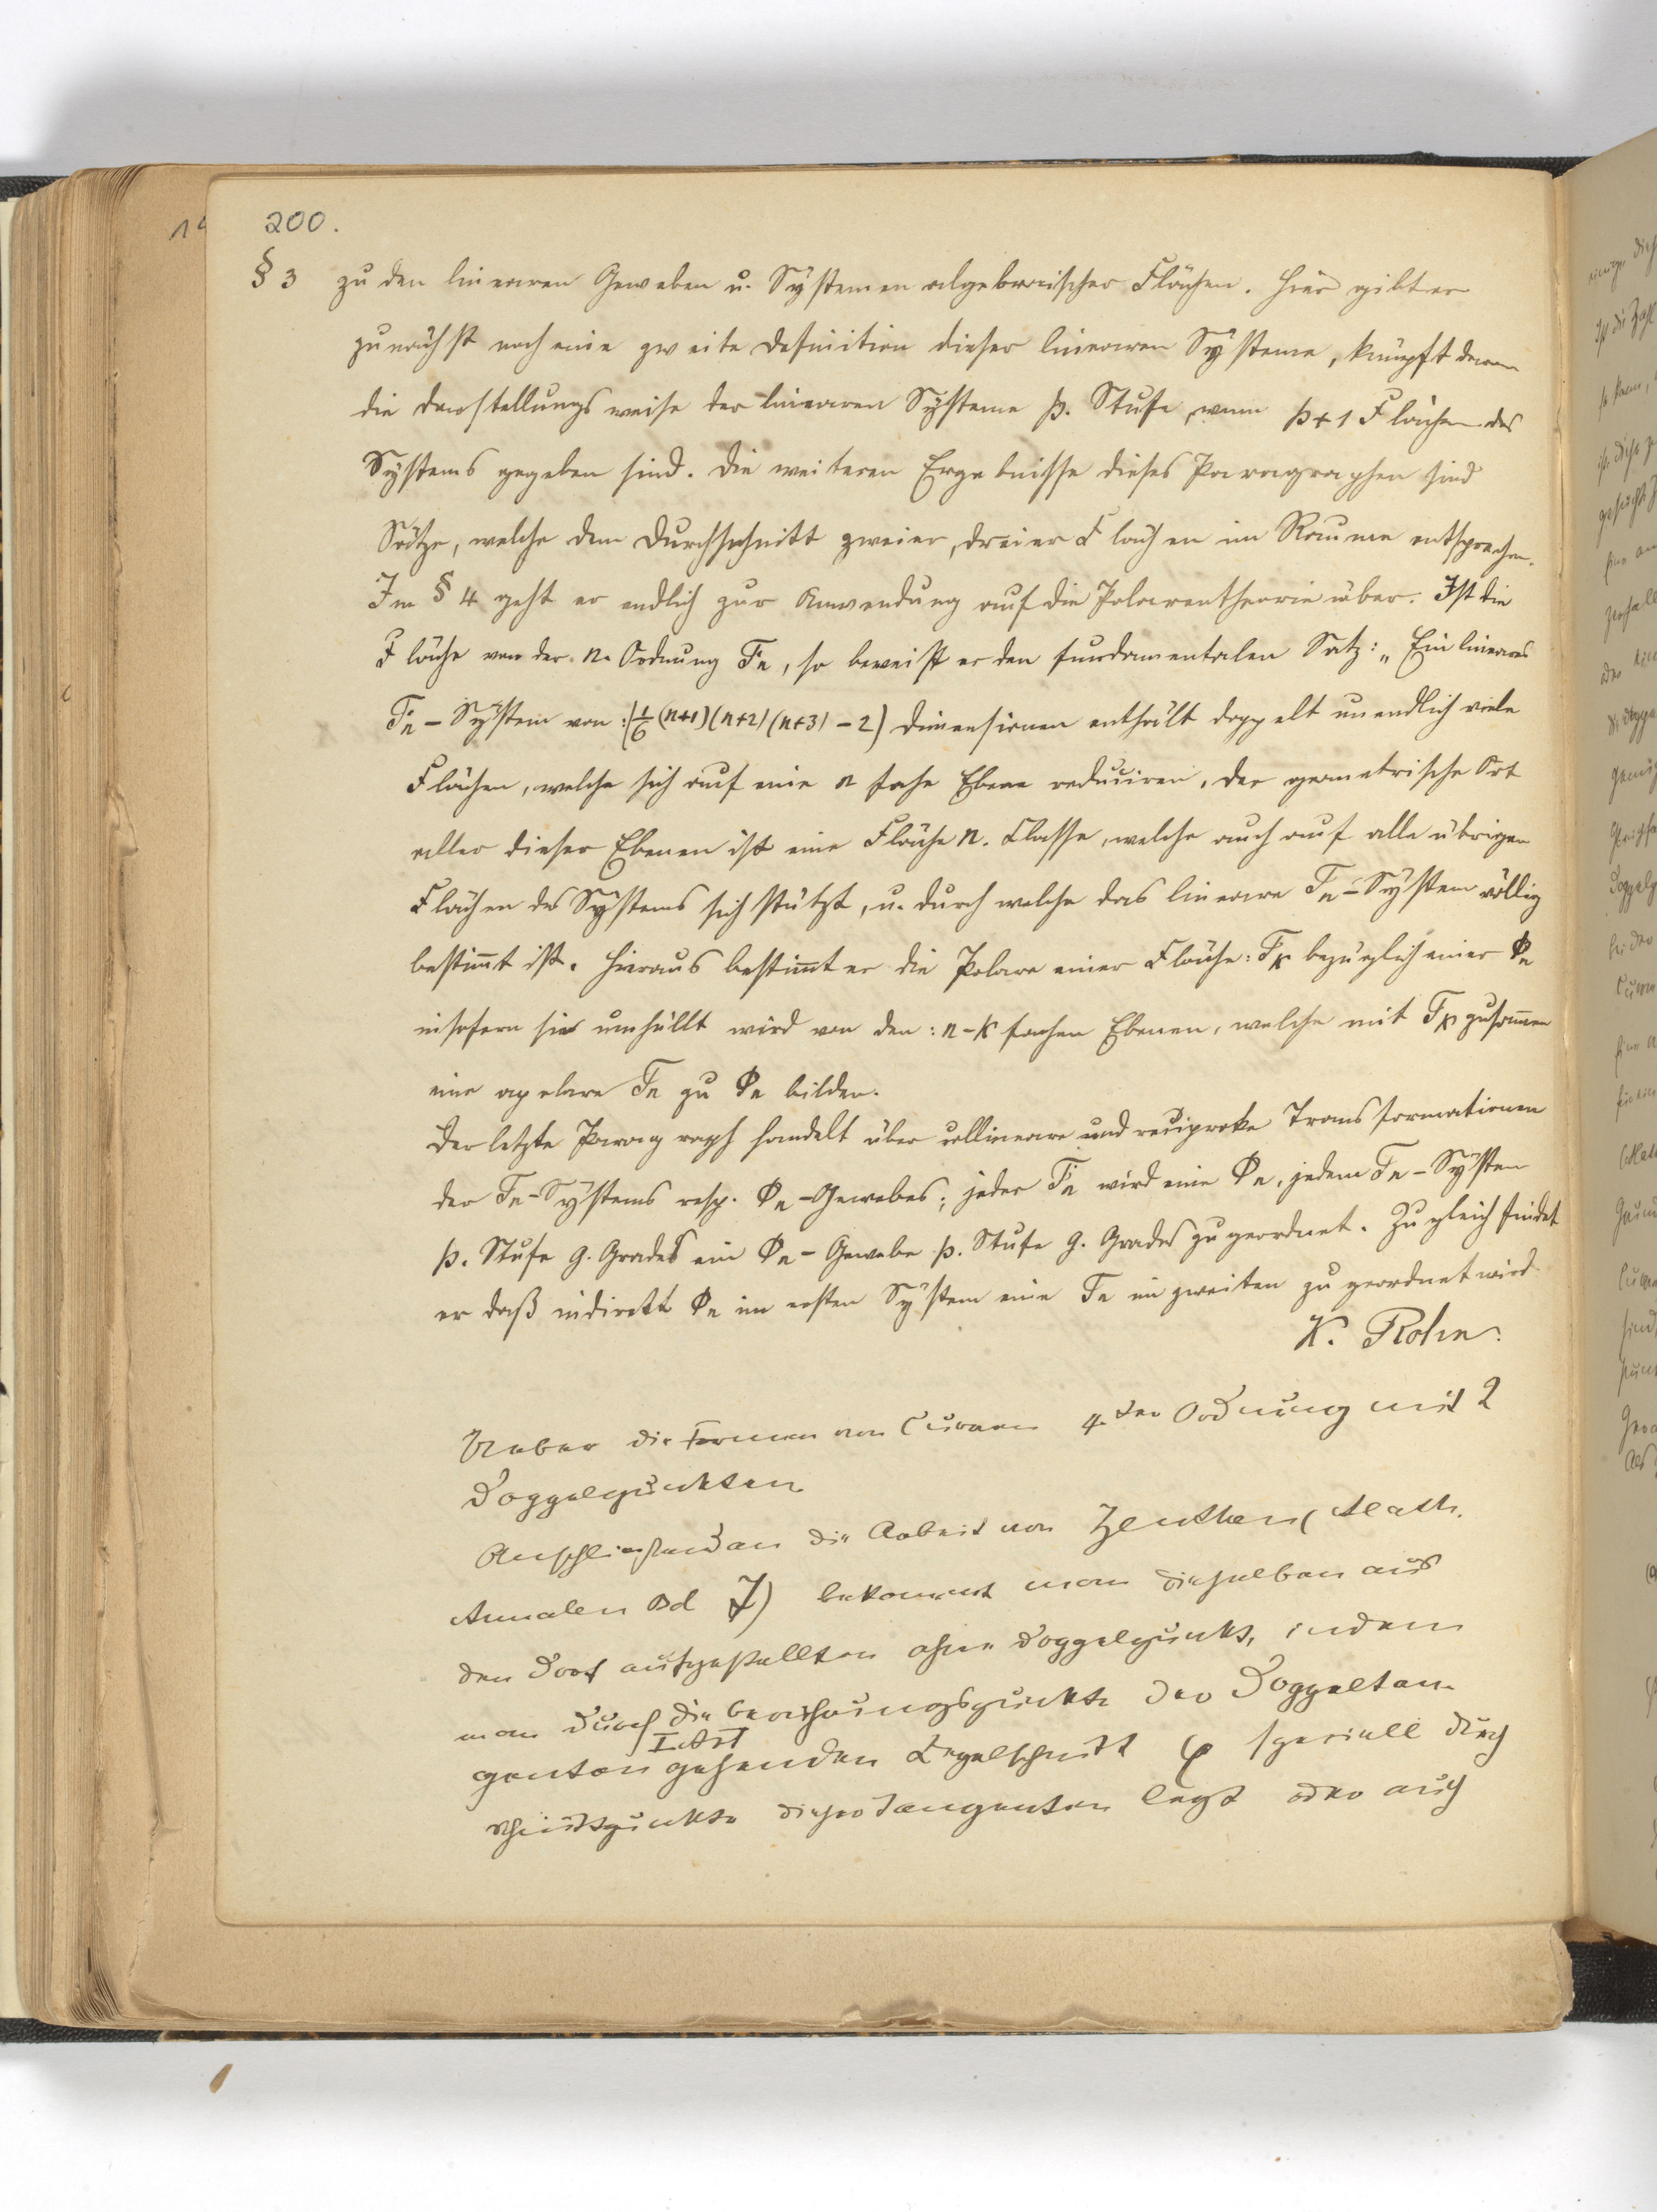 200.
§ 3 zu den linearen Geweben u. Systemen algebraischer Flächen. Hier gibt er
zunächst noch eine zweite Definition dieser linearen Systeme, knüpft daran
die Darstellungsweise der linearen Systeme p. Stufe, wenn p+1 Flächen des
Systems gegeben sind. Die weiteren Ergebnisse dieses Paragraphen sind
Sätze, welche dem Durchschnitt zweier, dreier Flächen im Raume entsprechen.
Im § 4 geht er endlich zur Anwendung auf die Polarentheorie über. Ist die
Fläche von der n. Ordnung Fn, so beweist er den fundamentalen Satz: „Ein lineares
Fn-System von: (1/6 (n+1)(n+2)(n+3) – 2) Dimensionen enthält doppelt unendlich viele
Flächen, welche sich auf eine n fache Ebene reduciren, der geometrische Ort
aller dieser Ebenen ist eine Fläche n. Classe, welche auch auf alle übrigen
Flächen des Systems sich stützt, u. durch welche das lineare Fn-System völlig
bestimt ist. Hieraus bestimt er die Polare einer Fläche: Fk bezüglich einer Φn
insofern sie umhüllt wird von den: n-k fachen Ebenen, welche mit Fk zusammen
eine apolare Fn zu Φn bilden.
Der letzte Paragraph handelt über collineare und reciproke Transformationen
der Fn-Systems resp. Φn-Gewebes; jeder Fn wird eine Φn, jedem Fn-System
p. Stufe g. Grades ein Φn-Gewebe p. Stufe g. Grades zugeordnet. Zugleich findet
er daß indirekt Φn im ersten System eine Fn im zweiten zugeordnet wird.
K. Rohn.
Ueber die Formen von Curven 4.ter Ordnung mit 2
Doppelpunkten
Anschließend an die Arbeit von Zeuthen (Math.
Annalen Bd 7) bekommt man dieselben aus
den dort aufgestellten ohne Doppelpunkt, indem
man durch die Berührungspunkte der Doppeltan-
genten I. Art gehenden Kegelschnitt φ speciell durch
Schnittpunkte dieser Tangenten legt oder auch